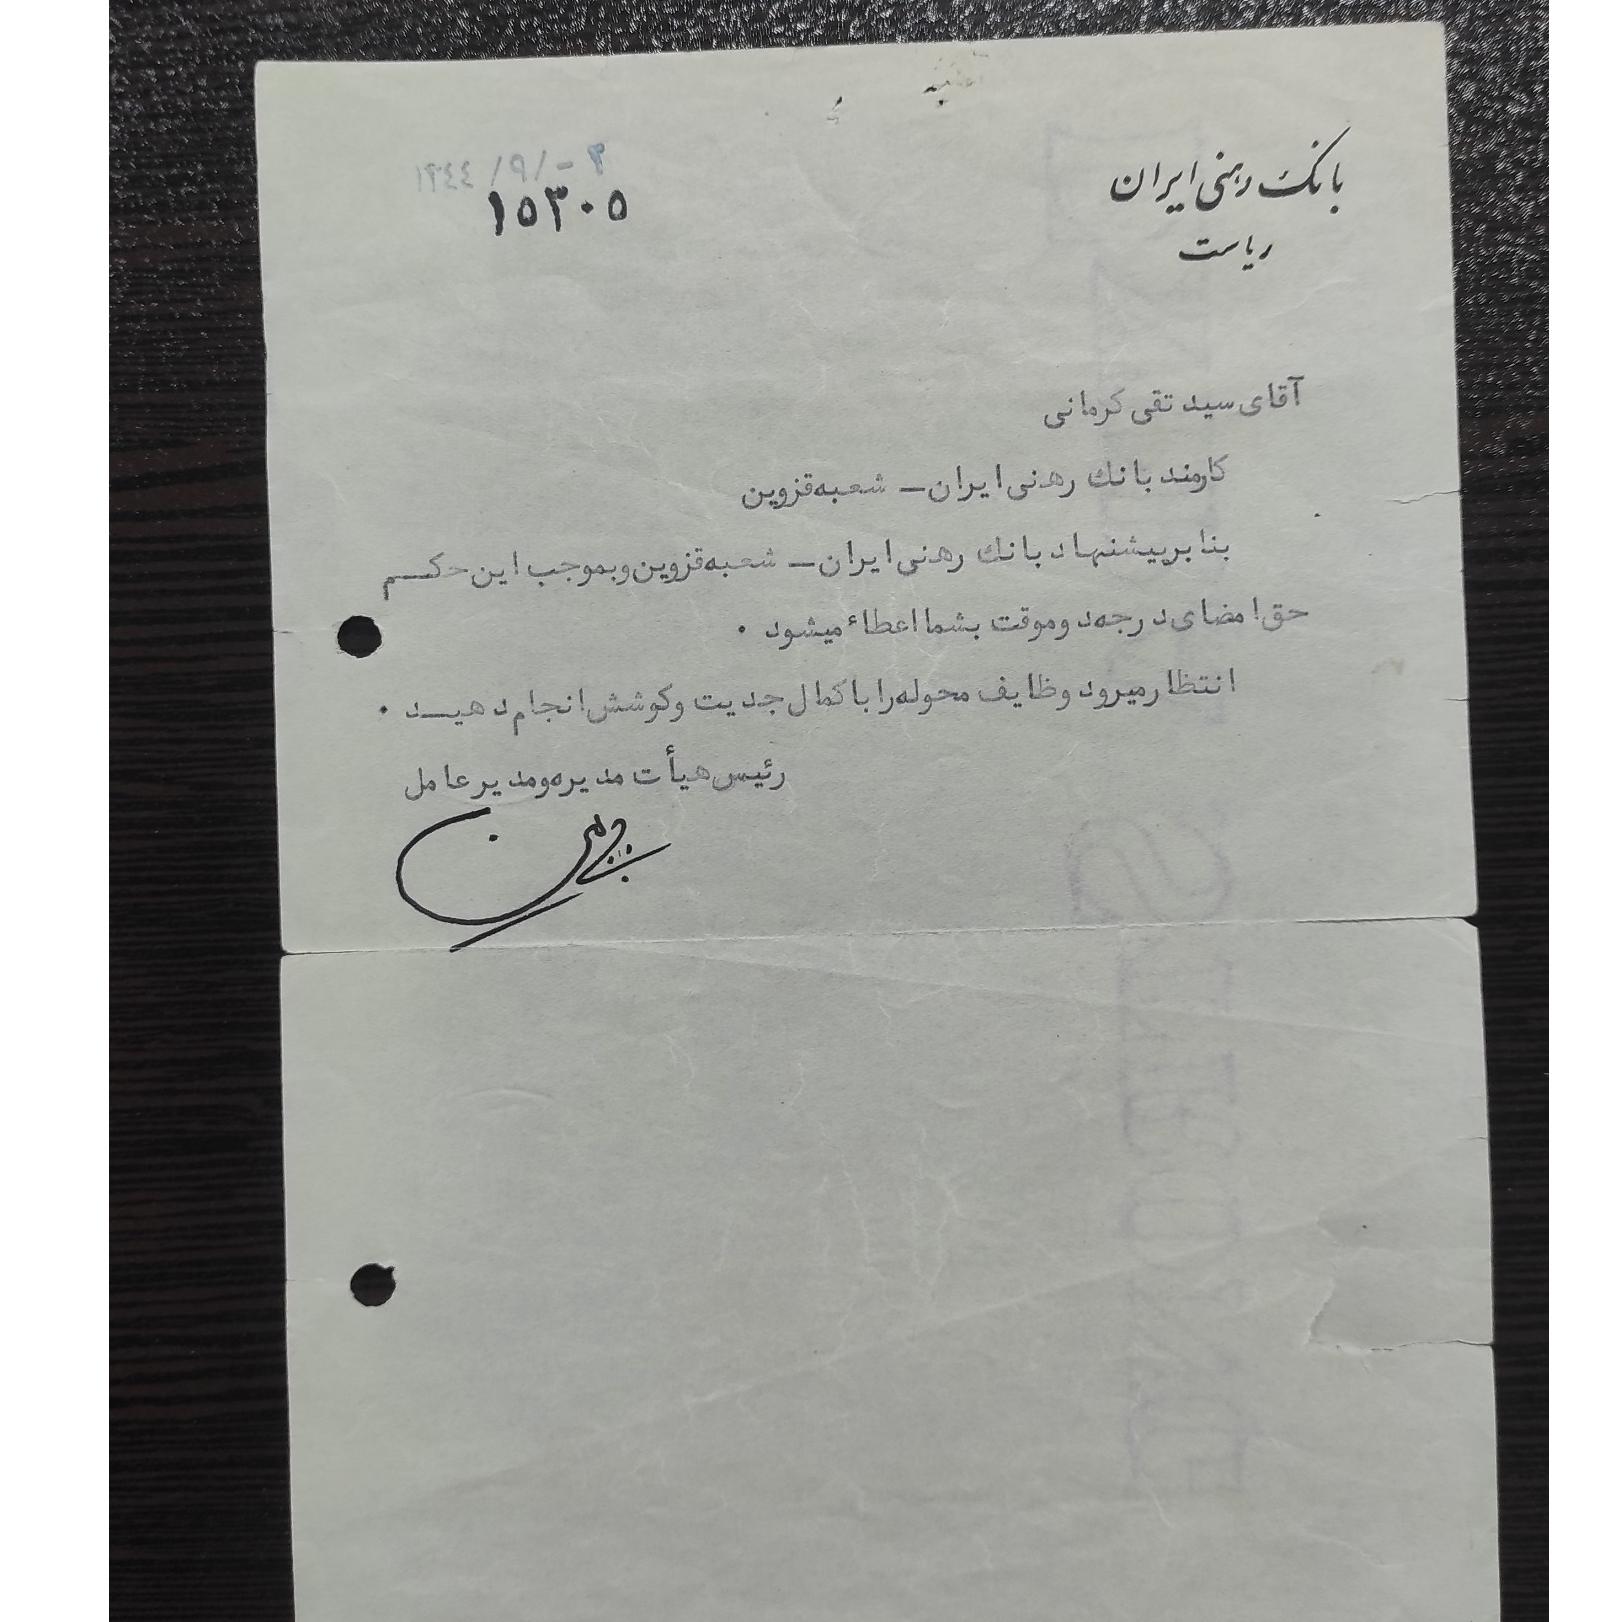 بانک رهنی ایران
ریاست
۱۳٤٤ /۹/-۳
۱۵۳۰۵
آقای سید تقی کرمانی
کارمند بانك رهنی ایران ـ شعبه قزوین
بنا بر پیشنهاد بانك رهنی ایران ـ شعبه قزوین و بموجب این حکم
حق امضای درجه دو موقت بشما اعطاء میشود .
انتظار میرود وظایف محوله را با کمال جدیت و کوشش انجام دهید .
رئیس هیأت مدیره و مدیر عامل